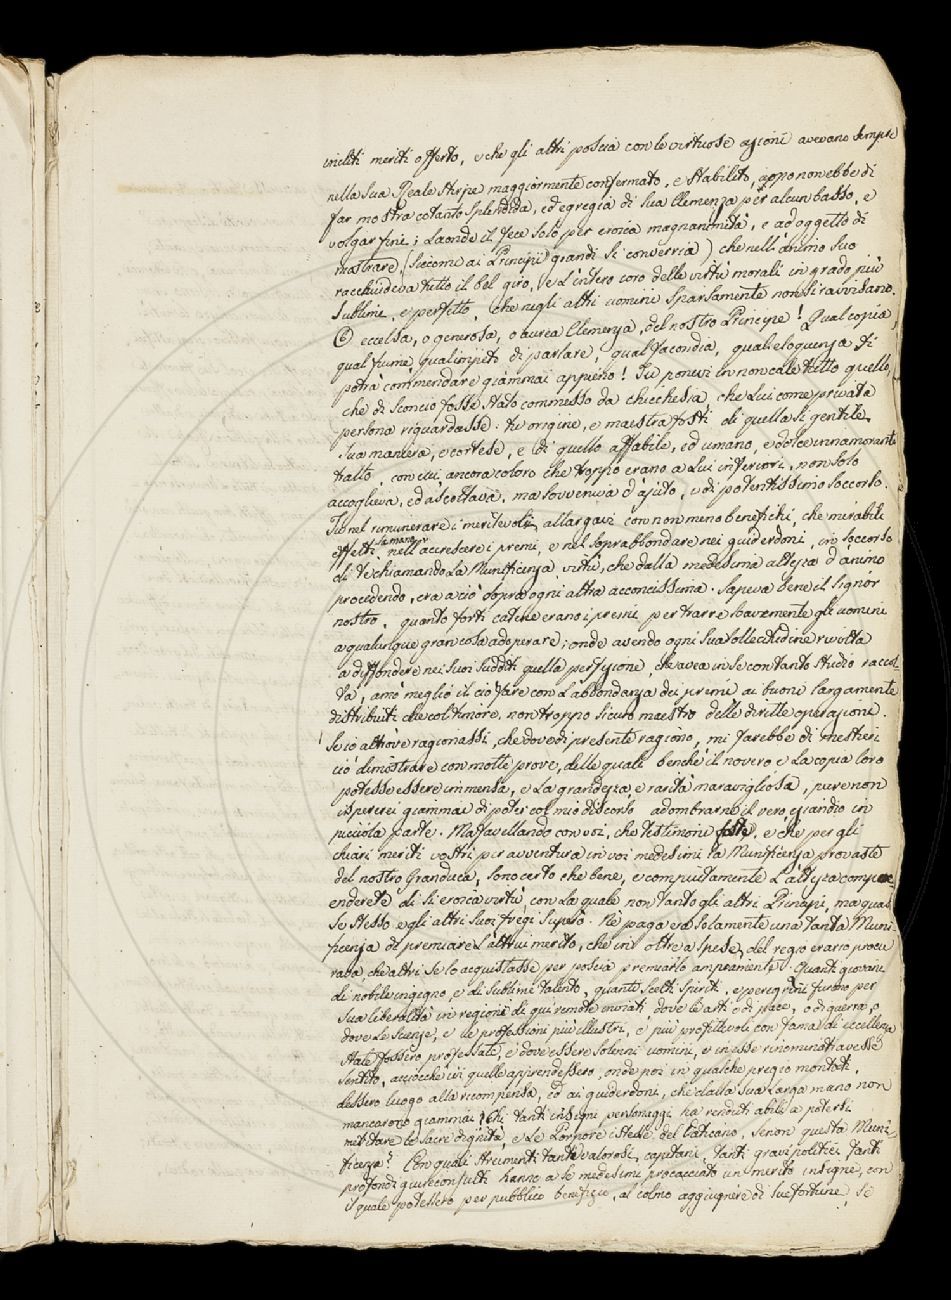 incliti meriti offerto, e che gli altri poscia con le virtuose azioni avevano sempre
nella sua Reale stirpe maggiormente confermato, e stabilito, appo non ebbe di
far mostra cotanto splendida, ed egregia di sua Clemenza per alcun basso, e
volgar fine; laonde il fece solo per eroica magnanimità, e ad oggetto di
mostrare (siccome ai Principi grandi si converria) che nell'animo suo
racchiudeva tutto il bel giro, e l'intero coro delle virtù morali in grado più
sublime, e perfetto, che negli altri uomini sparsamente non si ravvisano.
O eccelsa, o generosa, o aurea Clemenza, del nostro Principe! Qual copia,
qual fiume, qual impeto di parlare, qual facondia, qual eloquenza ti
potrà commendare giammai appieno! Tu ponevi in non cale tutto quello,
che di sconcio fosse stato commesso da chicchesia, che Lui come privata
persona riguardasse: tu origine, e maestra fosti di quella sì gentile
sua maniera, e cortese, e di quello affabile, ed umano, e dolce innamorante
tratto, con cui ancora coloro che troppo erano a Lui inferiori, non solo
accoglieva, ed ascoltava, ma sovveniva d'ajuto, e di potentissimo soccorso.
Tu nel rimunerare i meritevoli allargavi con non meno benefichi, che mirabili
effetti nell'accrescere i premi, e nel soprabbondare nei guiderdoni, in soccorso
di te chiamando la Munificenza virtù, che dalla medesima altezza d'animo
procedendo, era a ciò sopra ogni altra acconcissima. Sapeva bene il Signor
nostro, quanto forti catene erano i premi per trarre soavemente gli uomini
a qualunque gran cosa adoperare; onde avendo ogni sua sollecitudine rivolta
a diffondere nei suoi sudditi quella perfezione, che avea in se con tanto studio raccol-
ta, amò meglio il ciò fare con l'abbondanza dei premi ai buoni largamente
distribuiti che col timore, non troppo sicuro maestro delle diritte operazioni.
Se io altrove ragionassi, che dove di presente ragiono, mi farebbe di mestieri
ciò dimostrare con molte prove, delle quale benchè il novero e la copia loro
potesse essere immensa, e la grandezza, e rarità maravigliosa, pure non
ispererei giammai di poter col mio discorso adombrarne il vero eziandio in
picciola parte. Ma favellando con voi, che testimoni foste, e che per gli
chiari meriti vostri per avventura in voi medesimi la Munificenza provaste
del nostro Granduca, sono certo che bene, e compiutamente l'altezza compr-
enderete di sì eroica virtù, con la quale non tanto gli altri Principi, ma quasi
se stesso e gli altri suoi fregi superò. Nè pago era solamente una tanta Muni-
ficenza di premiare l'altrui merito, che in oltre a spese del regio erario procu
rava che altri se lo acquistasse per poscia premiarlo ampiamente. Quanti giovani
di nobile ingegno, e di sublime talento, quanti scelti spiriti, e peregrini furono per
sua liberalità in regioni di qui remote inviati dove le arti o di pace, o di guerra, o
dove le scienze, e le professioni più illustri, e più profittevoli con fama di eccellenza
state fossero professate, e dove essere solenni uomini, e in esse rinominati avesse
sentito, acciocchè ivi quelle apprendessero, onde poi in qualche pregio montati,
dessero luogo alla ricompensa, ed ai guiderdoni, che dalla sua larga mano non
mancarono giammai? Chi tanti insigni personaggi ha renduti abili a potersi
meritare le sacre dignità, e le Porpore istesse del Vaticano, senon questa Muni-
ficenza? Con quali strumenti tanti valorosi capitani, tanti gravi politici, tanti
profondi giureconsulti hanno a se medesimi procacciato un merito insigne, con
il quale potessero per pubblico benefizio, al colmo aggiugnere di sue fortune, se